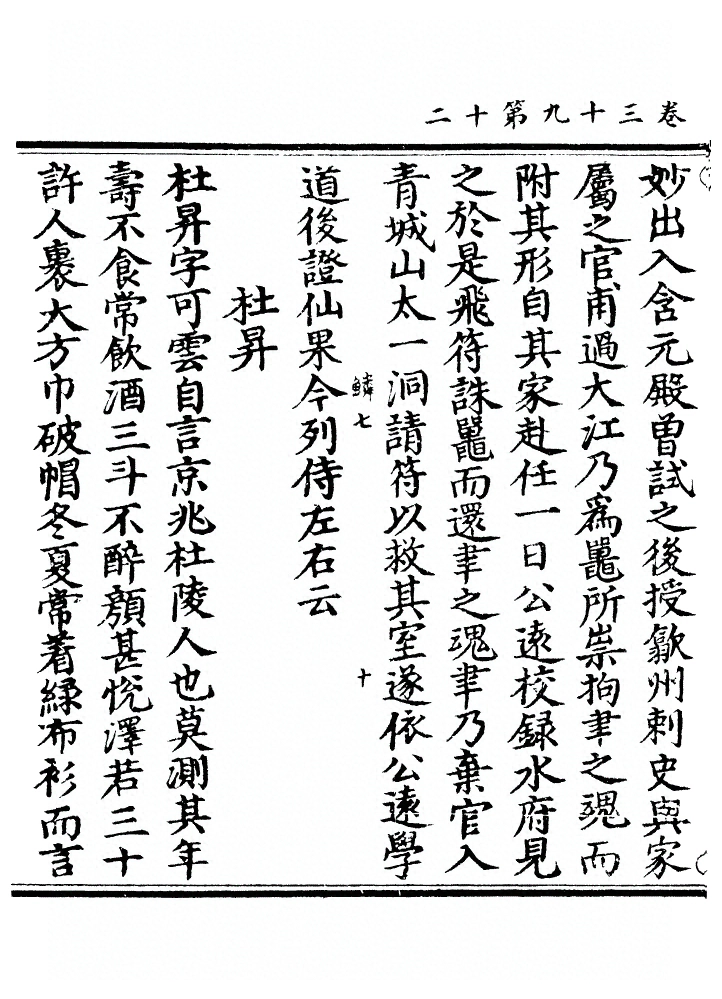 卷三十九第十二
妙出入含元殿曾試之後授歙州刺史與家
屬之官甫過大江乃爲鼉所祟拘聿之魂而
附其形自其家赴任一日公遠校録水府見
之於是飛符誅鼉而還聿之魂聿乃棄官入
青城山太一洞請符以救其室遂依公遠學
鱗七 十
道後證仙果今列侍左右云
杜昇
杜昇字可雲自言京兆杜陵人也莫測其年
壽不食常飲酒三斗不醉顔甚悅澤若三十
許人裹大方巾破帽冬夏常着緑布衫而言